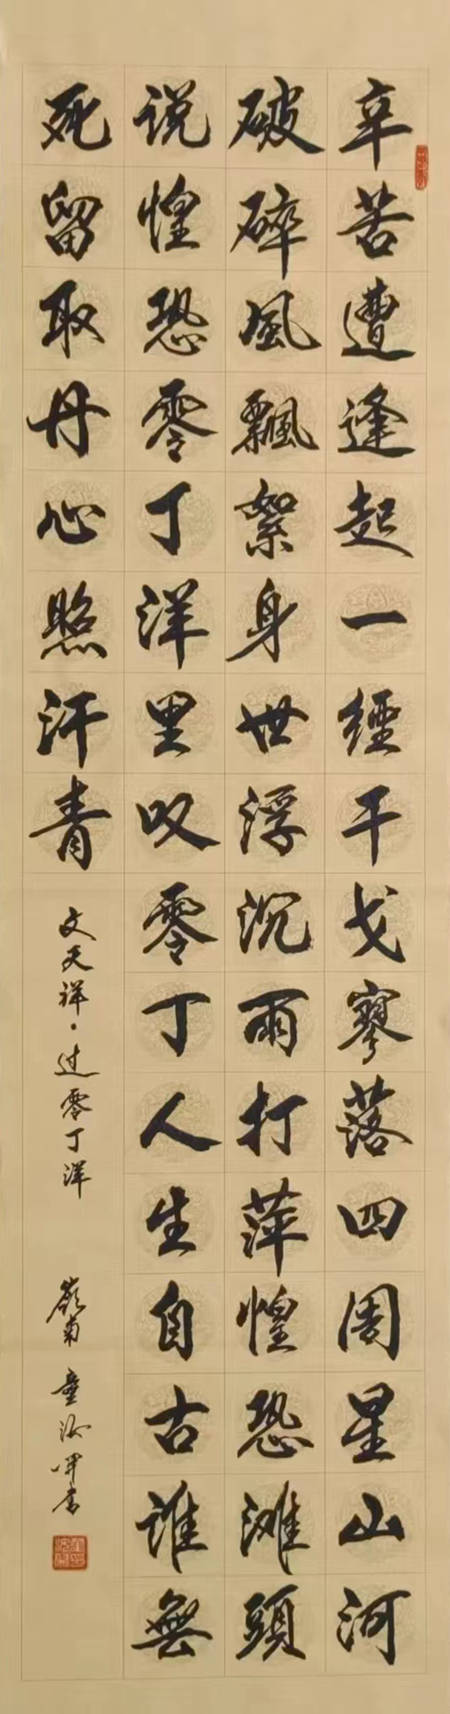 辛苦遭逢起一經干戈寥落四周星山河
破碎風飄絮身世浮沉雨打萍惶恐滩頭
说惶恐零丁洋里叹零丁人生自古谁無
死留取丹心照汗青
文天祥·过零丁洋
嶺南
書